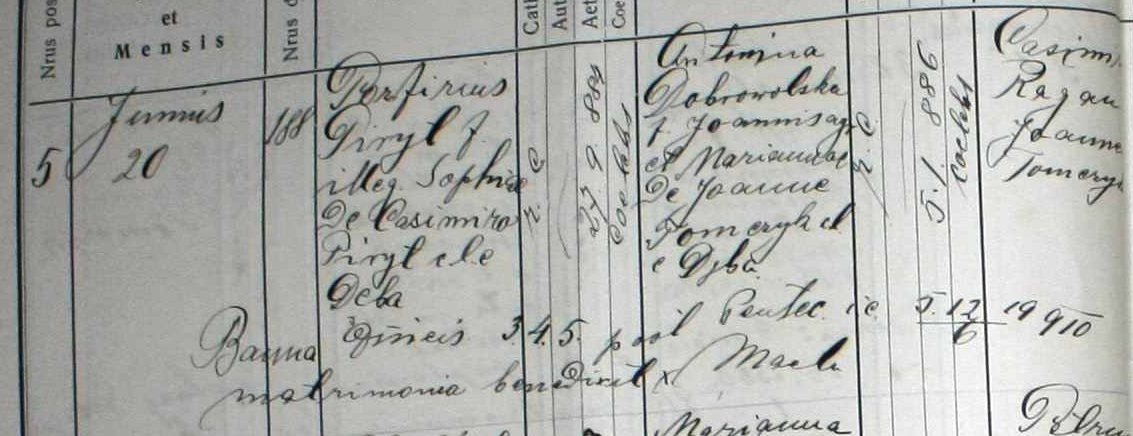 Nrus pos
et
Mensis
Nrus d
Cath
Aut
Aet
Coe
5
Junius
20
188
Porfirius
Piryl f.
illeg. Sophiae
De Casimiro
Piryl
Deba
27 9 889
coelebs
Antonina
Dobrowolska
f. Joannis
et Mariannae
De Joanne
Tomczyk et
e Dęba
5.1 886
coelebs
Casim
Ragan
Joanne
Tomczyk
Banna 3.4.5. post Pentec. i.e. 5. 12 19 910
6
matrimonia benedixit x Mach
Marianna